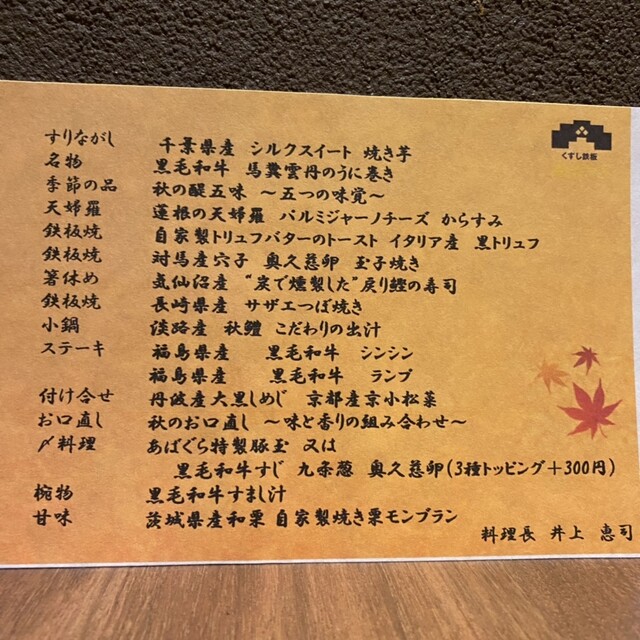 くずし鉄板
すりながし 千葉県産 シルクスイート 焼き芋
名物 黒毛和牛 馬糞雲丹のうに巻き
季節の品 秋の醍五味 ～五つの味覚～
天婦羅 蓮根の天婦羅 パルミジャーノチーズ からすみ
鉄板焼 自家製トリュフバターのトースト イタリア産 黒トリュフ
鉄板焼 対馬産穴子 奥久慈卵 玉子焼き
箸休め 気仙沼産 “炭で燻製した”戻り鰹の寿司
鉄板焼 長崎県産 サザエつぼ焼き
小鍋 淡路産 秋鱧 こだわりの出汁
ステーキ 福島県産 黒毛和牛 シンシン
福島県産 黒毛和牛 ランプ
付け合せ 丹波産大黒しめじ 京都産京小松菜
お口直し 秋のお口直し ～味と香りの組み合わせ～
〆料理 あばぐら特製豚玉 又は
黒毛和牛すじ 九条葱 奥久慈卵(3種トッピング＋300円)
椀物 黒毛和牛すまし汁
甘味 茨城県産和栗 自家製焼き栗モンブラン
料理長 井上 恵司